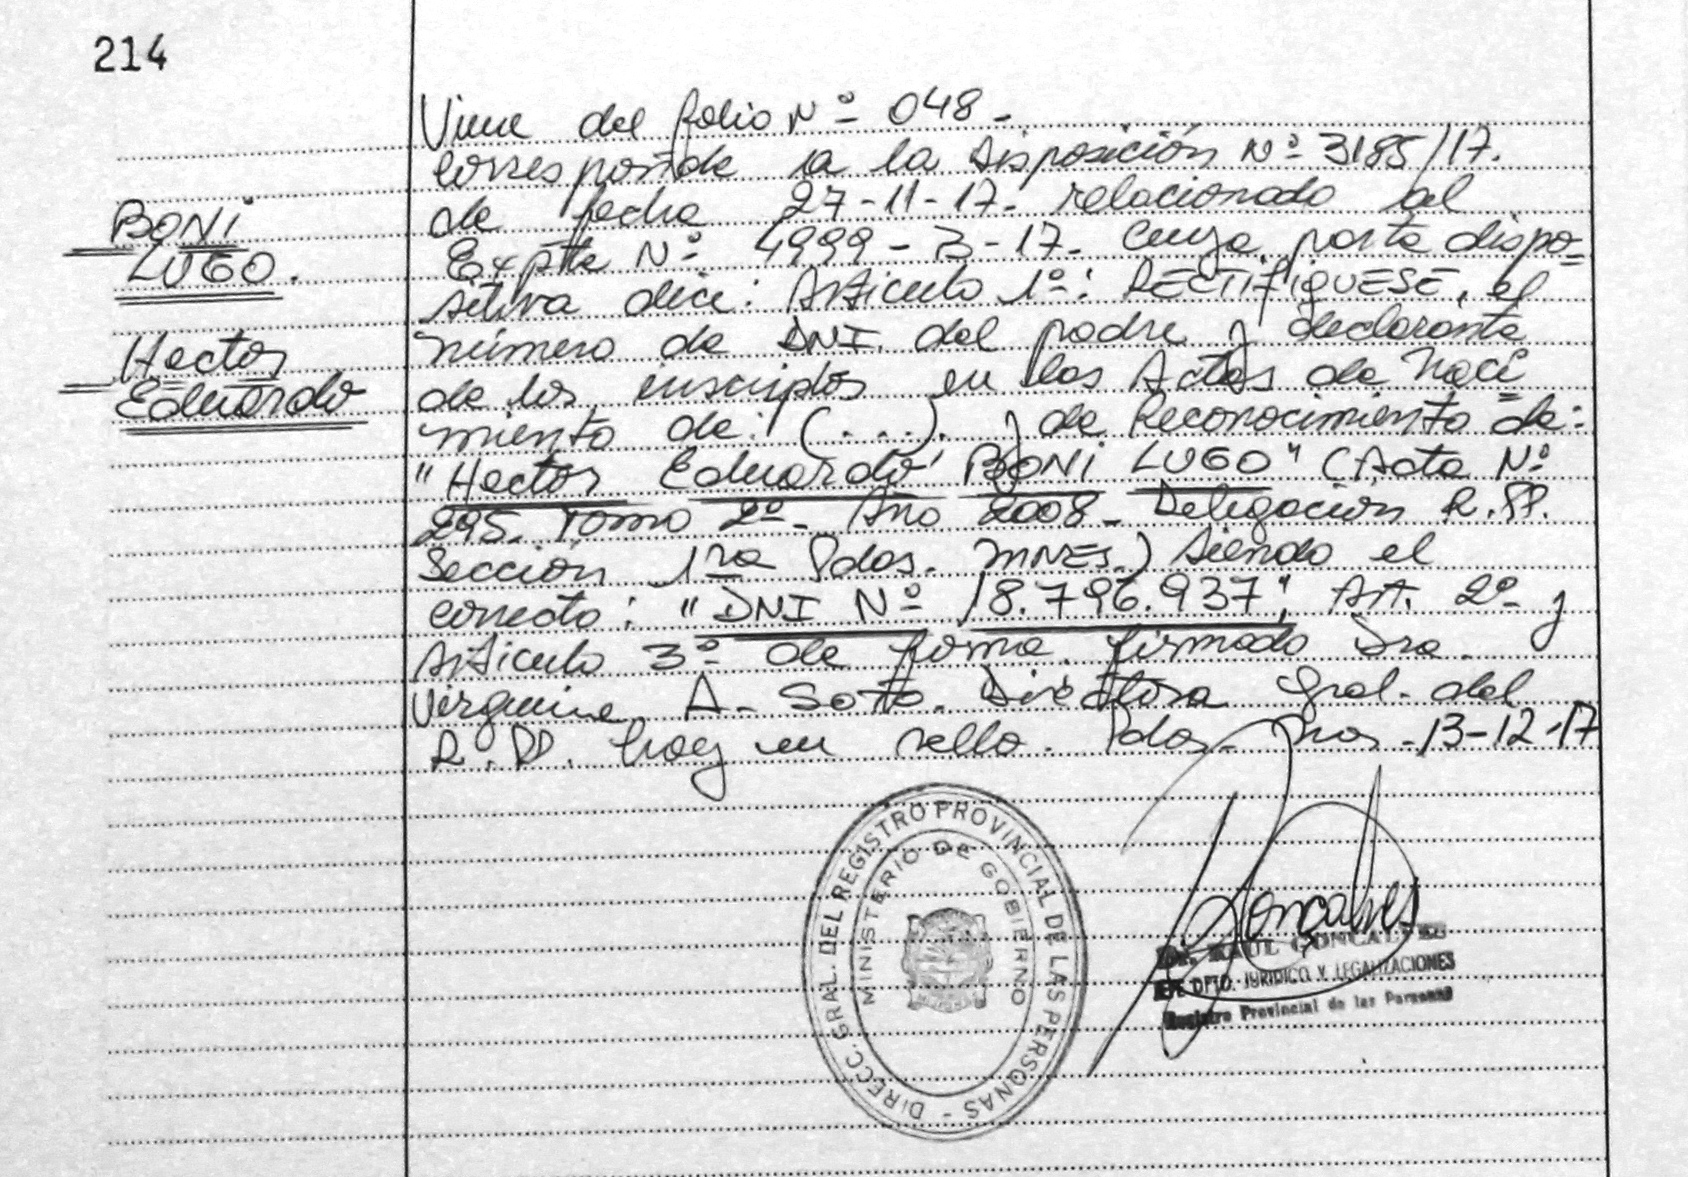 214
BONI
LUGO.
Hector
Eduardo
Viene del folio Nº 048-
corresponde a la Disposición Nº 3185/17.
de fecha 27-11-17. relacionado al
Expte Nº 4999-3-17. cuya parte dispo=
sitiva dice: Articulo 1º: RECTIFIQUESE, el
número de DNI. del padre y declarante
de los inscriptos en las Actas de Naci=
miento de: (...). y de Reconocimiento de:
"Hector Eduardo BONI LUGO" (Acta Nº
295. Tomo 2º- Año 2008- Delegación R.PP.
Sección 1ra Pdas. MNES.) siendo el
correcto: "DNI Nº 18.796.937", Art. 2º y
Articulo 3º de forma. firmado Dra.
A. Soto. Directora Gral. del
R.PP. hay un sello. Pdas- Mnes.-13-12-17
DIRECC. GRAL. DEL REGISTRO PROVINCIAL DE LAS PERSONAS -
MINISTERIO DE GOBIERNO
Goncalves
Dr. RAUL GONCALVES
JEFE DPTO. JURIDICO Y LEGALIZACIONES
Registro Provincial de las Personas